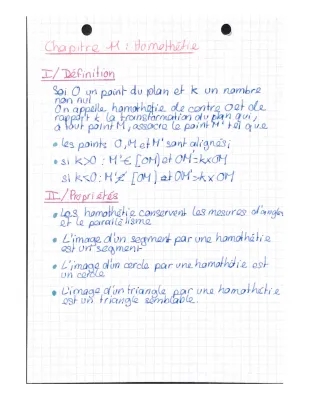 Chapitre 11 : Homothétie
I/ Définition
Soi O un point du plan et k un nombre
non nul
On appelle homothétie de centre O et de
rapport k la transformation du plan qui,
a tout point M, associe le point M' tel que
• les points O, M et M' sont alignés;
• si k>0 : M' ∈ [OM) et OM'=k×OM
si k<0 : M' ∉ [OM) et OM'=-k×OM
II/ Propriétés
• Les homothétie conservent les mesures d'angles
et le parallélisme
• L'image d'un segment par une homothétie
est un segment
• L'image d'un cercle par une homothétie est
un cercle
• L'image d'un triangle par une homothétie
est un triangle semblable.